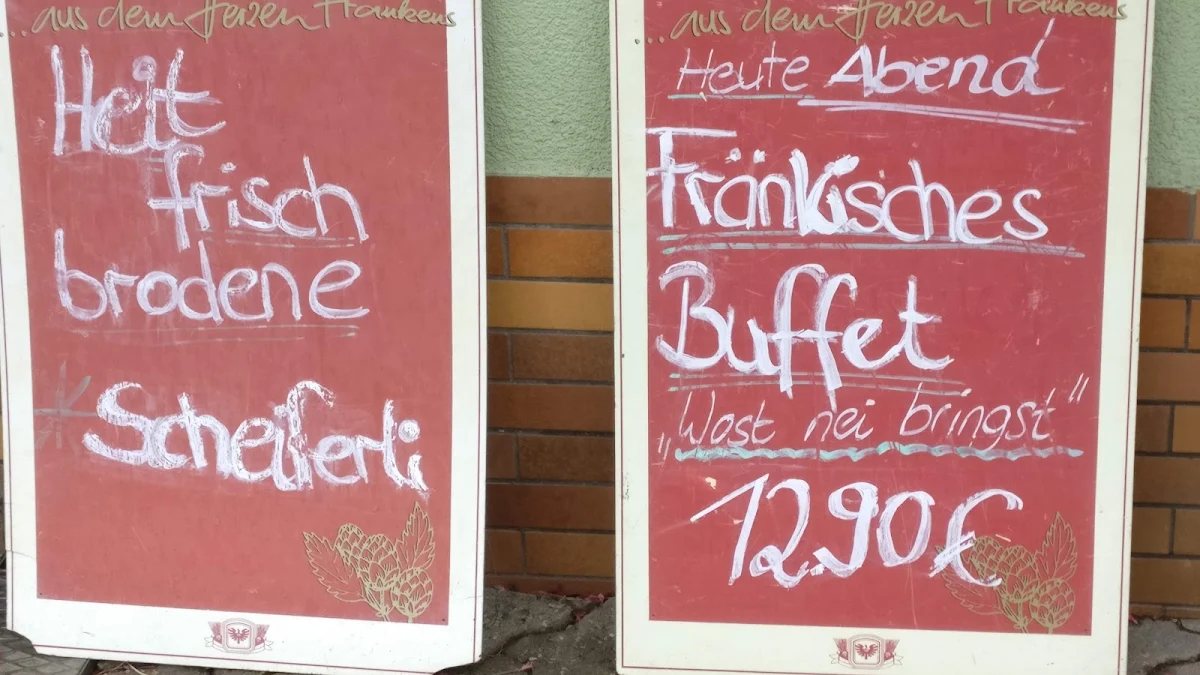 ...aus dem Herzen Frankens
Heit
frisch
brodene
Scheiferli
...aus dem Herzen Frankens
Heute Abend
Fränkisches
Buffet
„Wost nei bringst"
12.90 €